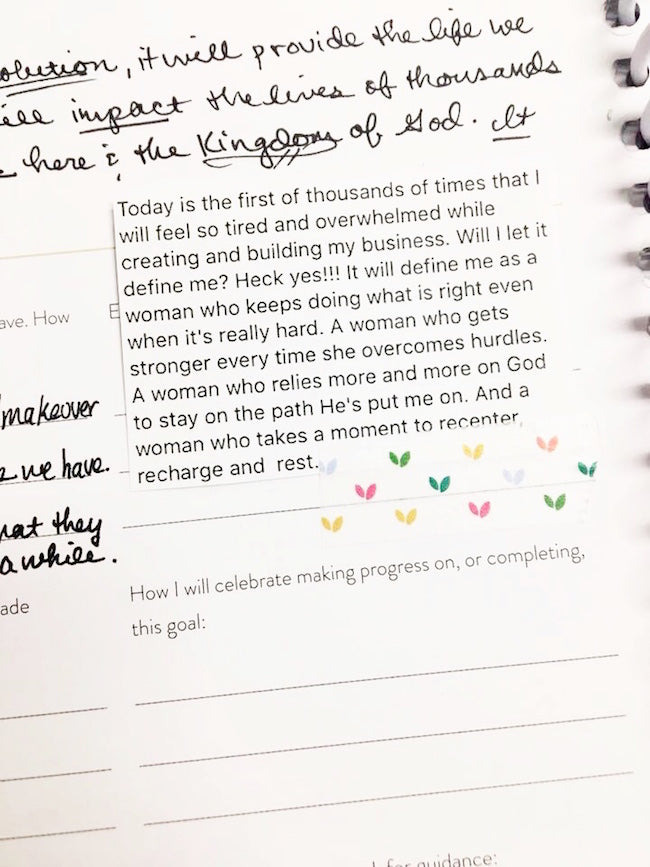 olution, it will provide the life we
impact the lives of thousands
here & the Kingdom of God. It
Today is the first of thousands of times that I
will feel so tired and overwhelmed while
creating and building my business. Will I let it
define me? Heck yes!!! It will define me as a
woman who keeps doing what is right even
when it's really hard. A woman who gets
stronger every time she overcomes hurdles.
A woman who relies more and more on God
to stay on the path He's put me on. And a
woman who takes a moment to recenter,
recharge and rest.
ave. How
E
makeover
we have.
they
a while.
ade
How I will celebrate making progress on, or completing,
this goal:
for guidance: